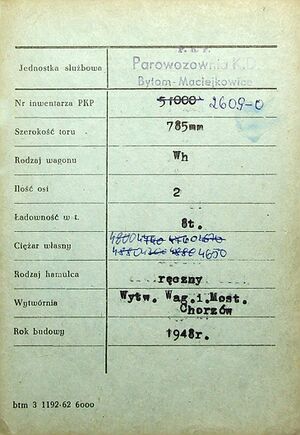 P. K. P.
Jednostka służbowa Parowozownia K.D.
Bytom-Maciejkowice
Nr inwentarza PKP 51000 2609-0
Szerokość toru 785mm
Rodzaj wagonu Wh
Ilość osi 2
Ładowność w t. 8t.
Ciężar własny 4800 4650
Rodzaj hamulca ręczny
Wytwórnia Wytw. Wag.i.Most.
Chorzów
Rok budowy 1948r.
btm 3 1192-62 6000